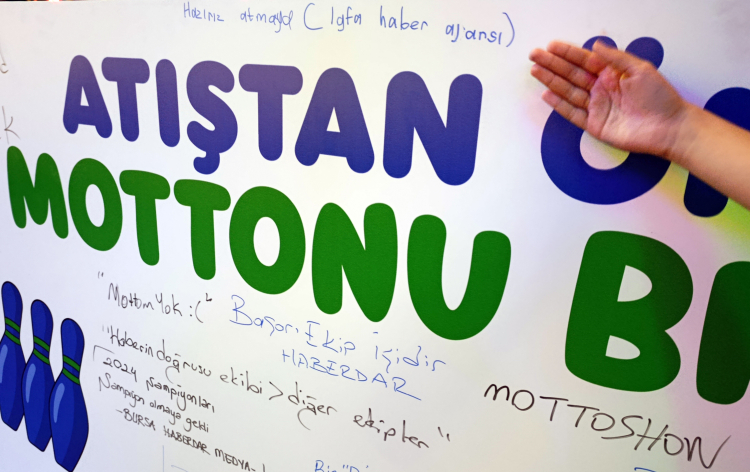 Hazırız atmaya (Igfa haber ajansı)
ATIŞTAN Ö
MOTTONU Bİ
"Mottom Yok :("
Başarı Ekip işidir
HABERDAR
"Haberin doğrusu ekibi > diğer ekipler"
2024 Şampiyonları
Şampiyon olmaya geldi
-BURSA HABERDAR MEDYA-
MOTTOSHOW